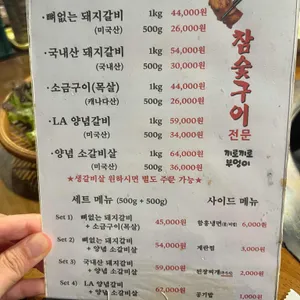 ·뼈없는 돼지갈비 1kg 44,000원
(미국산) 500g 26,000원
·국내산 돼지갈비 1kg 54,000원
(국내산) 500g 30,000원
·소금구이(목살) 1kg 44,000원
(캐나다산) 500g 26,000원
·LA 양념갈비 1kg 59,000원
(미국산) 500g 34,000원
·양념 소갈비살 1kg 64,000원
(미국산) 500g 36,000원
★생갈비살 원하시면 별도 주문 가능★
참숯구이
전문
끼로끼로
부엉이
세트 메뉴 (500g + 500g)
Set 1) 뼈없는 돼지갈비
+ 소금구이(목살) 45,000원
Set 2) 뼈없는 돼지갈비
+ 양념 소갈비살 54,000원
Set 3) 국내산 돼지갈비
+ 양념 소갈비살 59,000원
Set 4) LA 양념갈비
+ 양념 소갈비살 62,000원
사이드 메뉴
함흥냉면 6,000원
계란찜 3,000원
된장찌개 2,000원
공기밥 1,000원